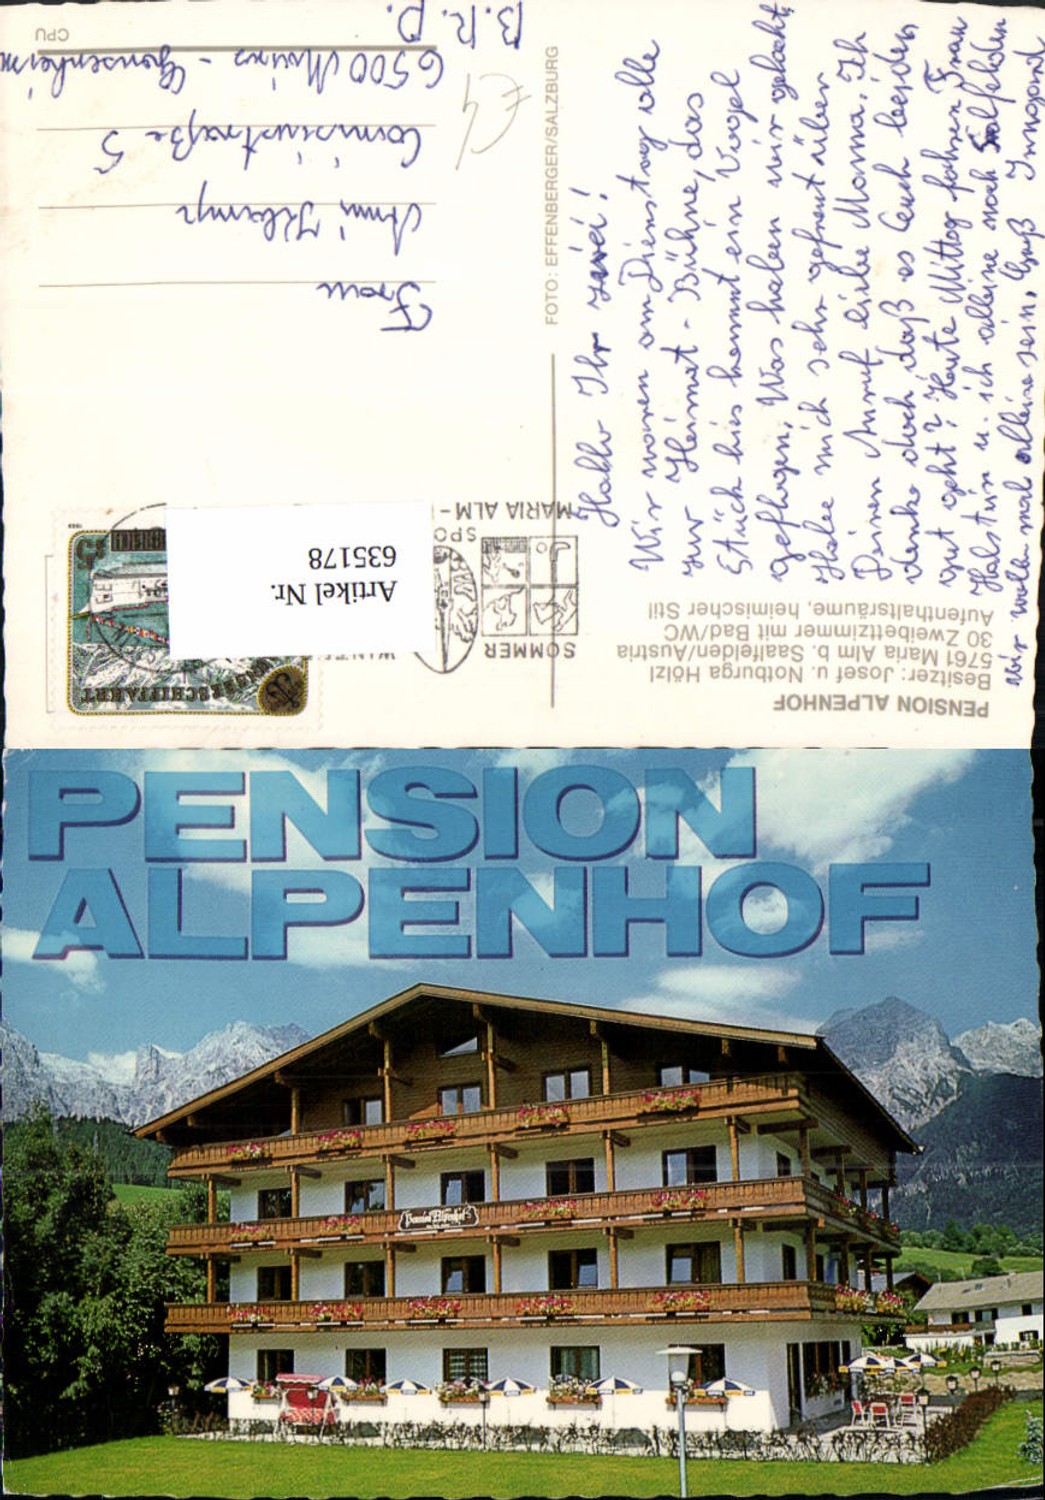 PENSION ALPENHOF
Besitzer: Josef u. Notburga Hölzl
5761 Maria Alm b. Saalfelden/Austria
30 Zweibettzimmer mit Bad/WC
Aufenthaltsräume, heimischer Stil
Hallo Ihr zwei!
Wir waren am Dienstag alle
zur Heimat-Bühne, das
Stück hies kommt ein Vogel
geflogen, Was haben wir gelacht,
Habe mich sehr gefreut über
Deinen Anruf liebe Mama. Ich
denke doch daß es Euch beiden
gut geht? Heute Mittag fahren Frau
u. ich alleine nach Saalfelden
wir wollen mal alleine sein, Gruß Irmgard
FOTO: EFFENBERGER/SALZBURG
SOMMER
MARIA ALM-
SPO
5
Artikel Nr.
635178
Frau
Anni
Straße 5
6500 Mainz - Gonsenheim
B.R.D.
CPU
€4
PENSION
ALPENHOF
Pension Alpenhof